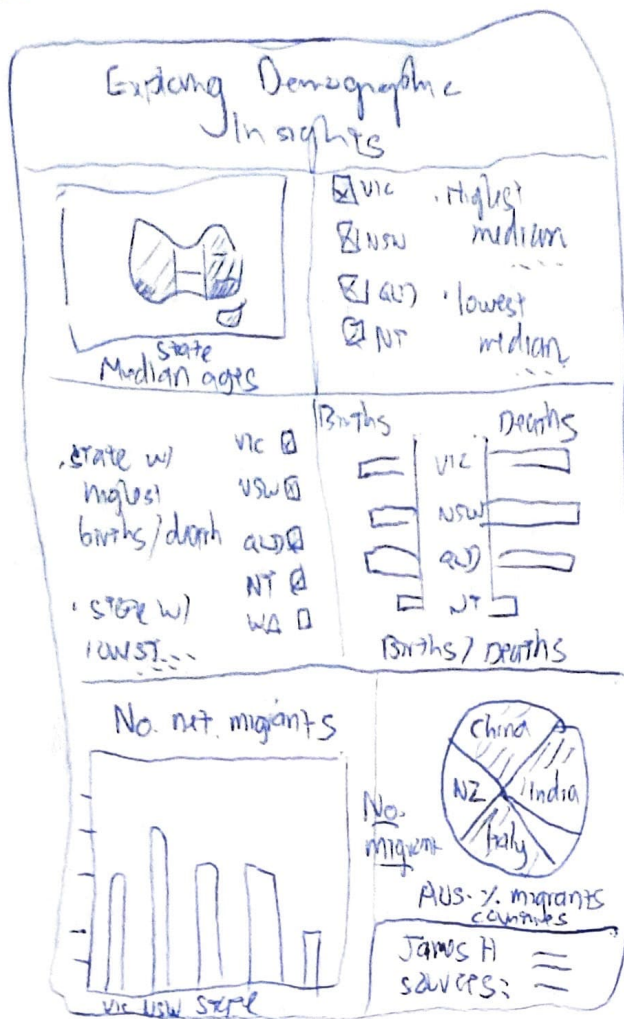 Exploring Demographic
Insights
VIC
NSW
QLD
NT
. Highest
median
. lowest
median
State
Median ages
. state w/
highest
births/death
. state w/
lowest
VIC
NSW
QLD
NT
WA
Births
Deaths
VIC
NSW
QLD
NT
Births/Deaths
No. net migrants
VIC NSW State
No.
migrant
China
NZ
India
Italy
AUS. % migrants
countries
James H
sources: